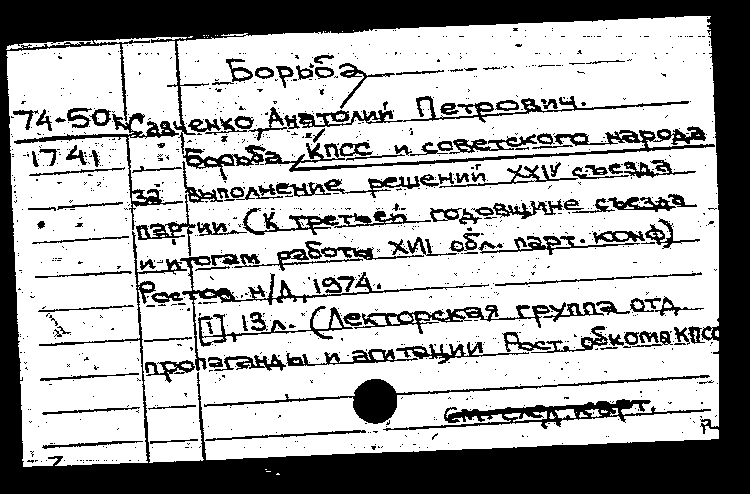 Борьба
74-50к Савченко, Анатолий Петрович.
1741 Борьба КПСС и советского народа
за выполнение решений XXIV съезда
партии. (К третьей годовщине съезда
и итогам работы XVII обл. парт. конф)
Ростов н/Д, 1974.
[1], 13л. (Лекторская группа отд.
пропаганды и агитации Рост. обкома КПСС
см. след. карт.